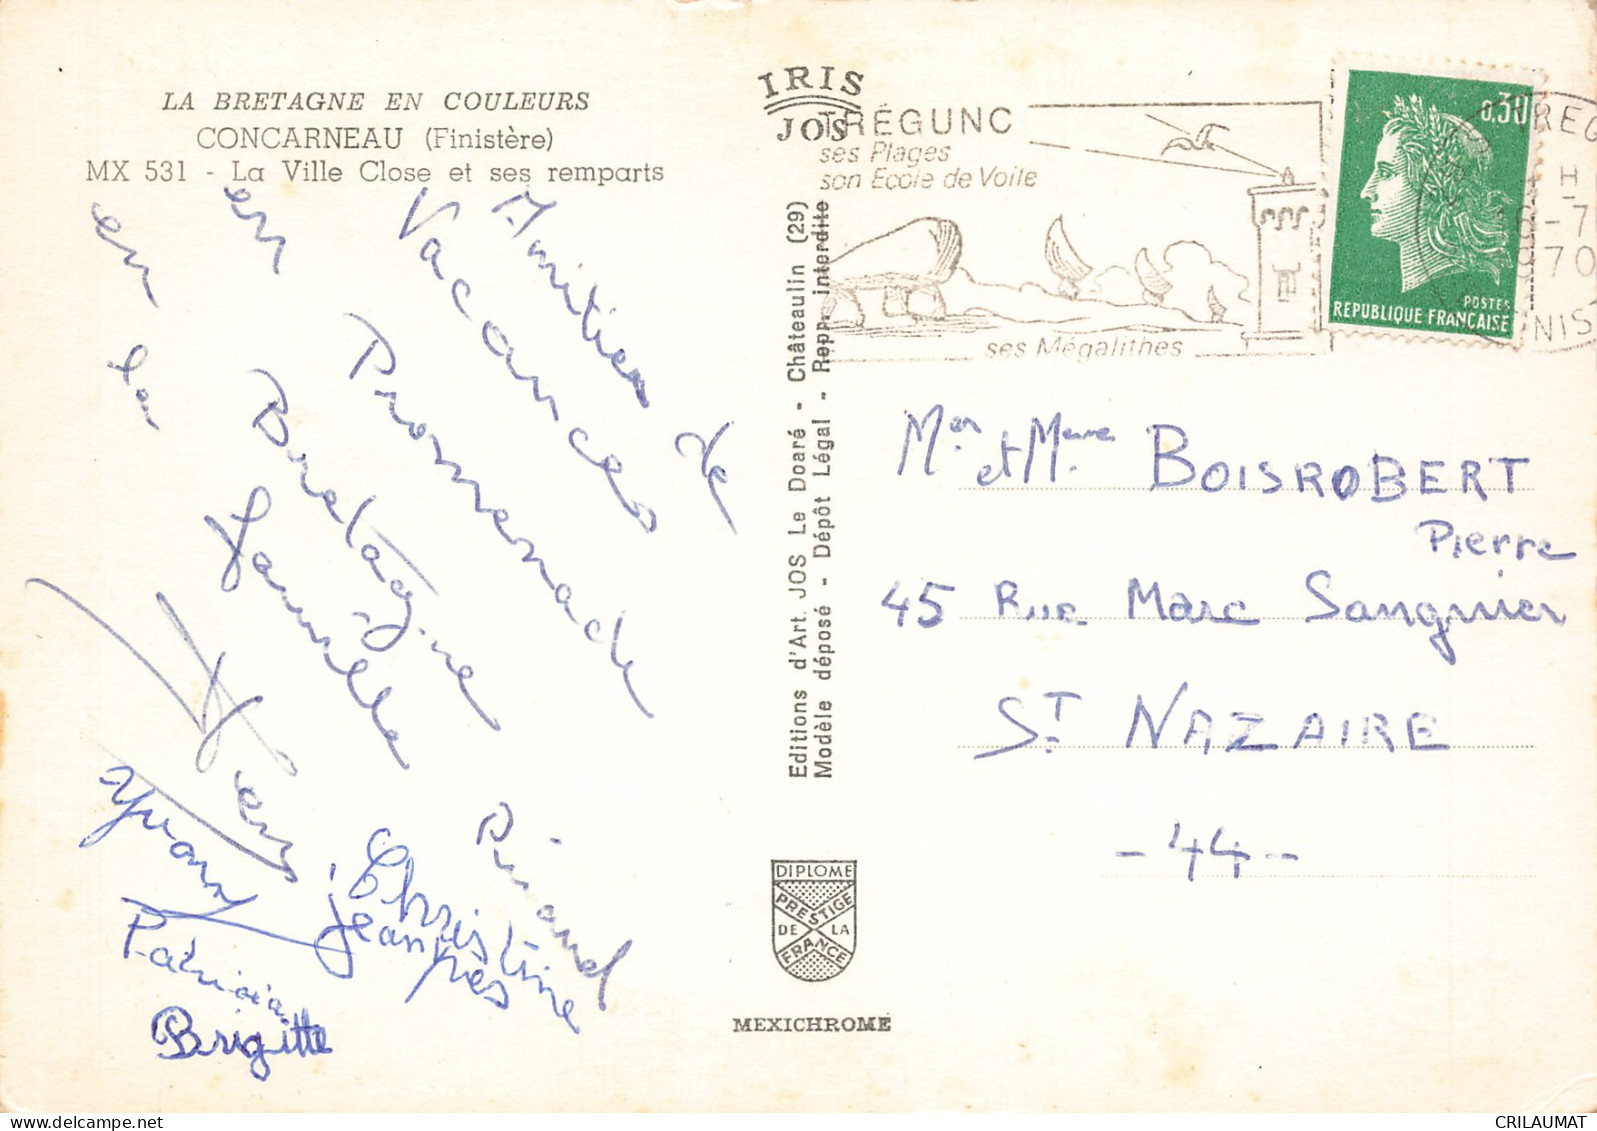 LA BRETAGNE EN COULEURS
CONCARNEAU (Finistère)
MX 531 - La Ville Close et ses remparts
Amitiés de
Vacances
en Promenade
en Bretagne
en
la
famille
Yvon
Christine
Jean Yves
Patricia
Brigitte
IRIS
JOS
Editions d'Art. JOS Le Doaré - Châteaulin (29)
Modèle déposé - Dépôt Légal - Repp. interdite
DIPLOME
PRESTIGE
DE LA
FRANCE
MEXICHROME
TRÉGUNC
ses Plages
son Ecole de Voile
ses Mégalithes
0,30
POSTES
REPUBLIQUE FRANÇAISE
TREG
H
16-7
1970
NIS
Mer et Mme BOISROBERT
Pierre
45 Rue Marc Sangnier
ST NAZAIRE
-44-
CRILAUMAT